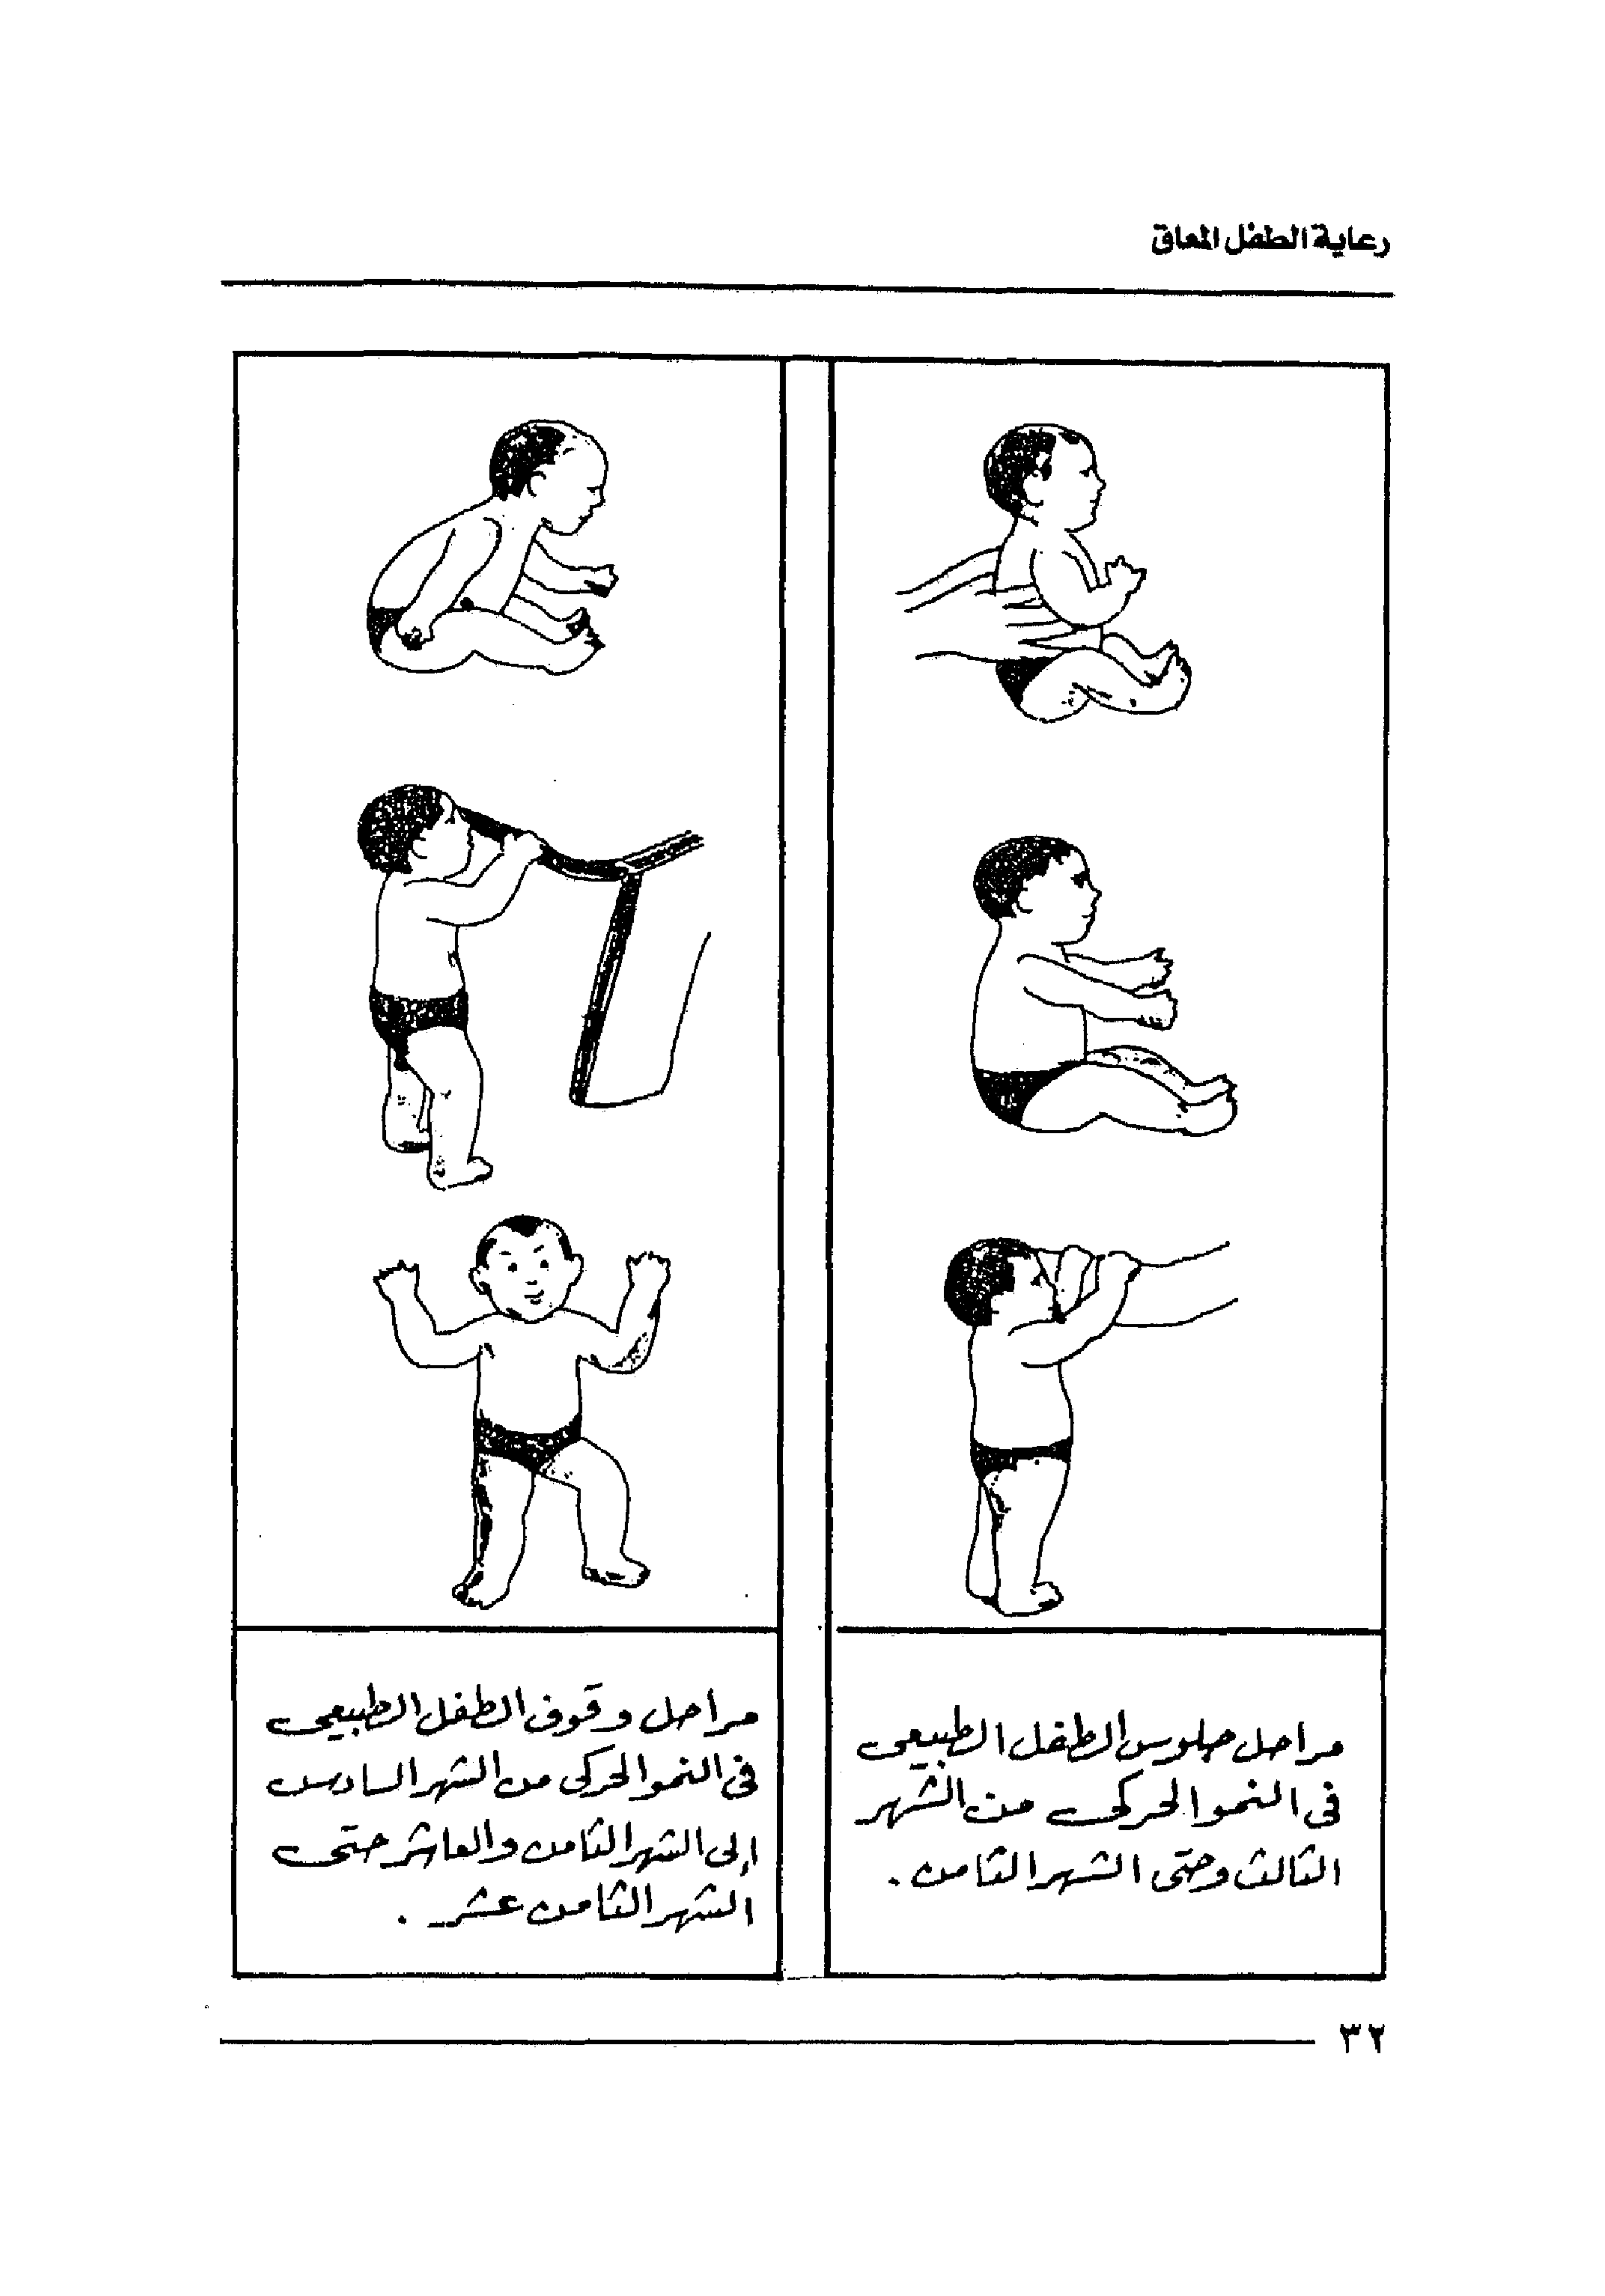 رعاية الطفل المعاق
مراحل جلوس الطفل الطبيعى
فى النمو الحركى من الشهر
الثالث وحتى الشهر الثامن .
مراحل وقوف الطفل الطبيعى
فى النمو الحركى من الشهر السادس
إلى الشهر الثامن والعاشر حتى
الشهر الثامن عشر .
٣٢